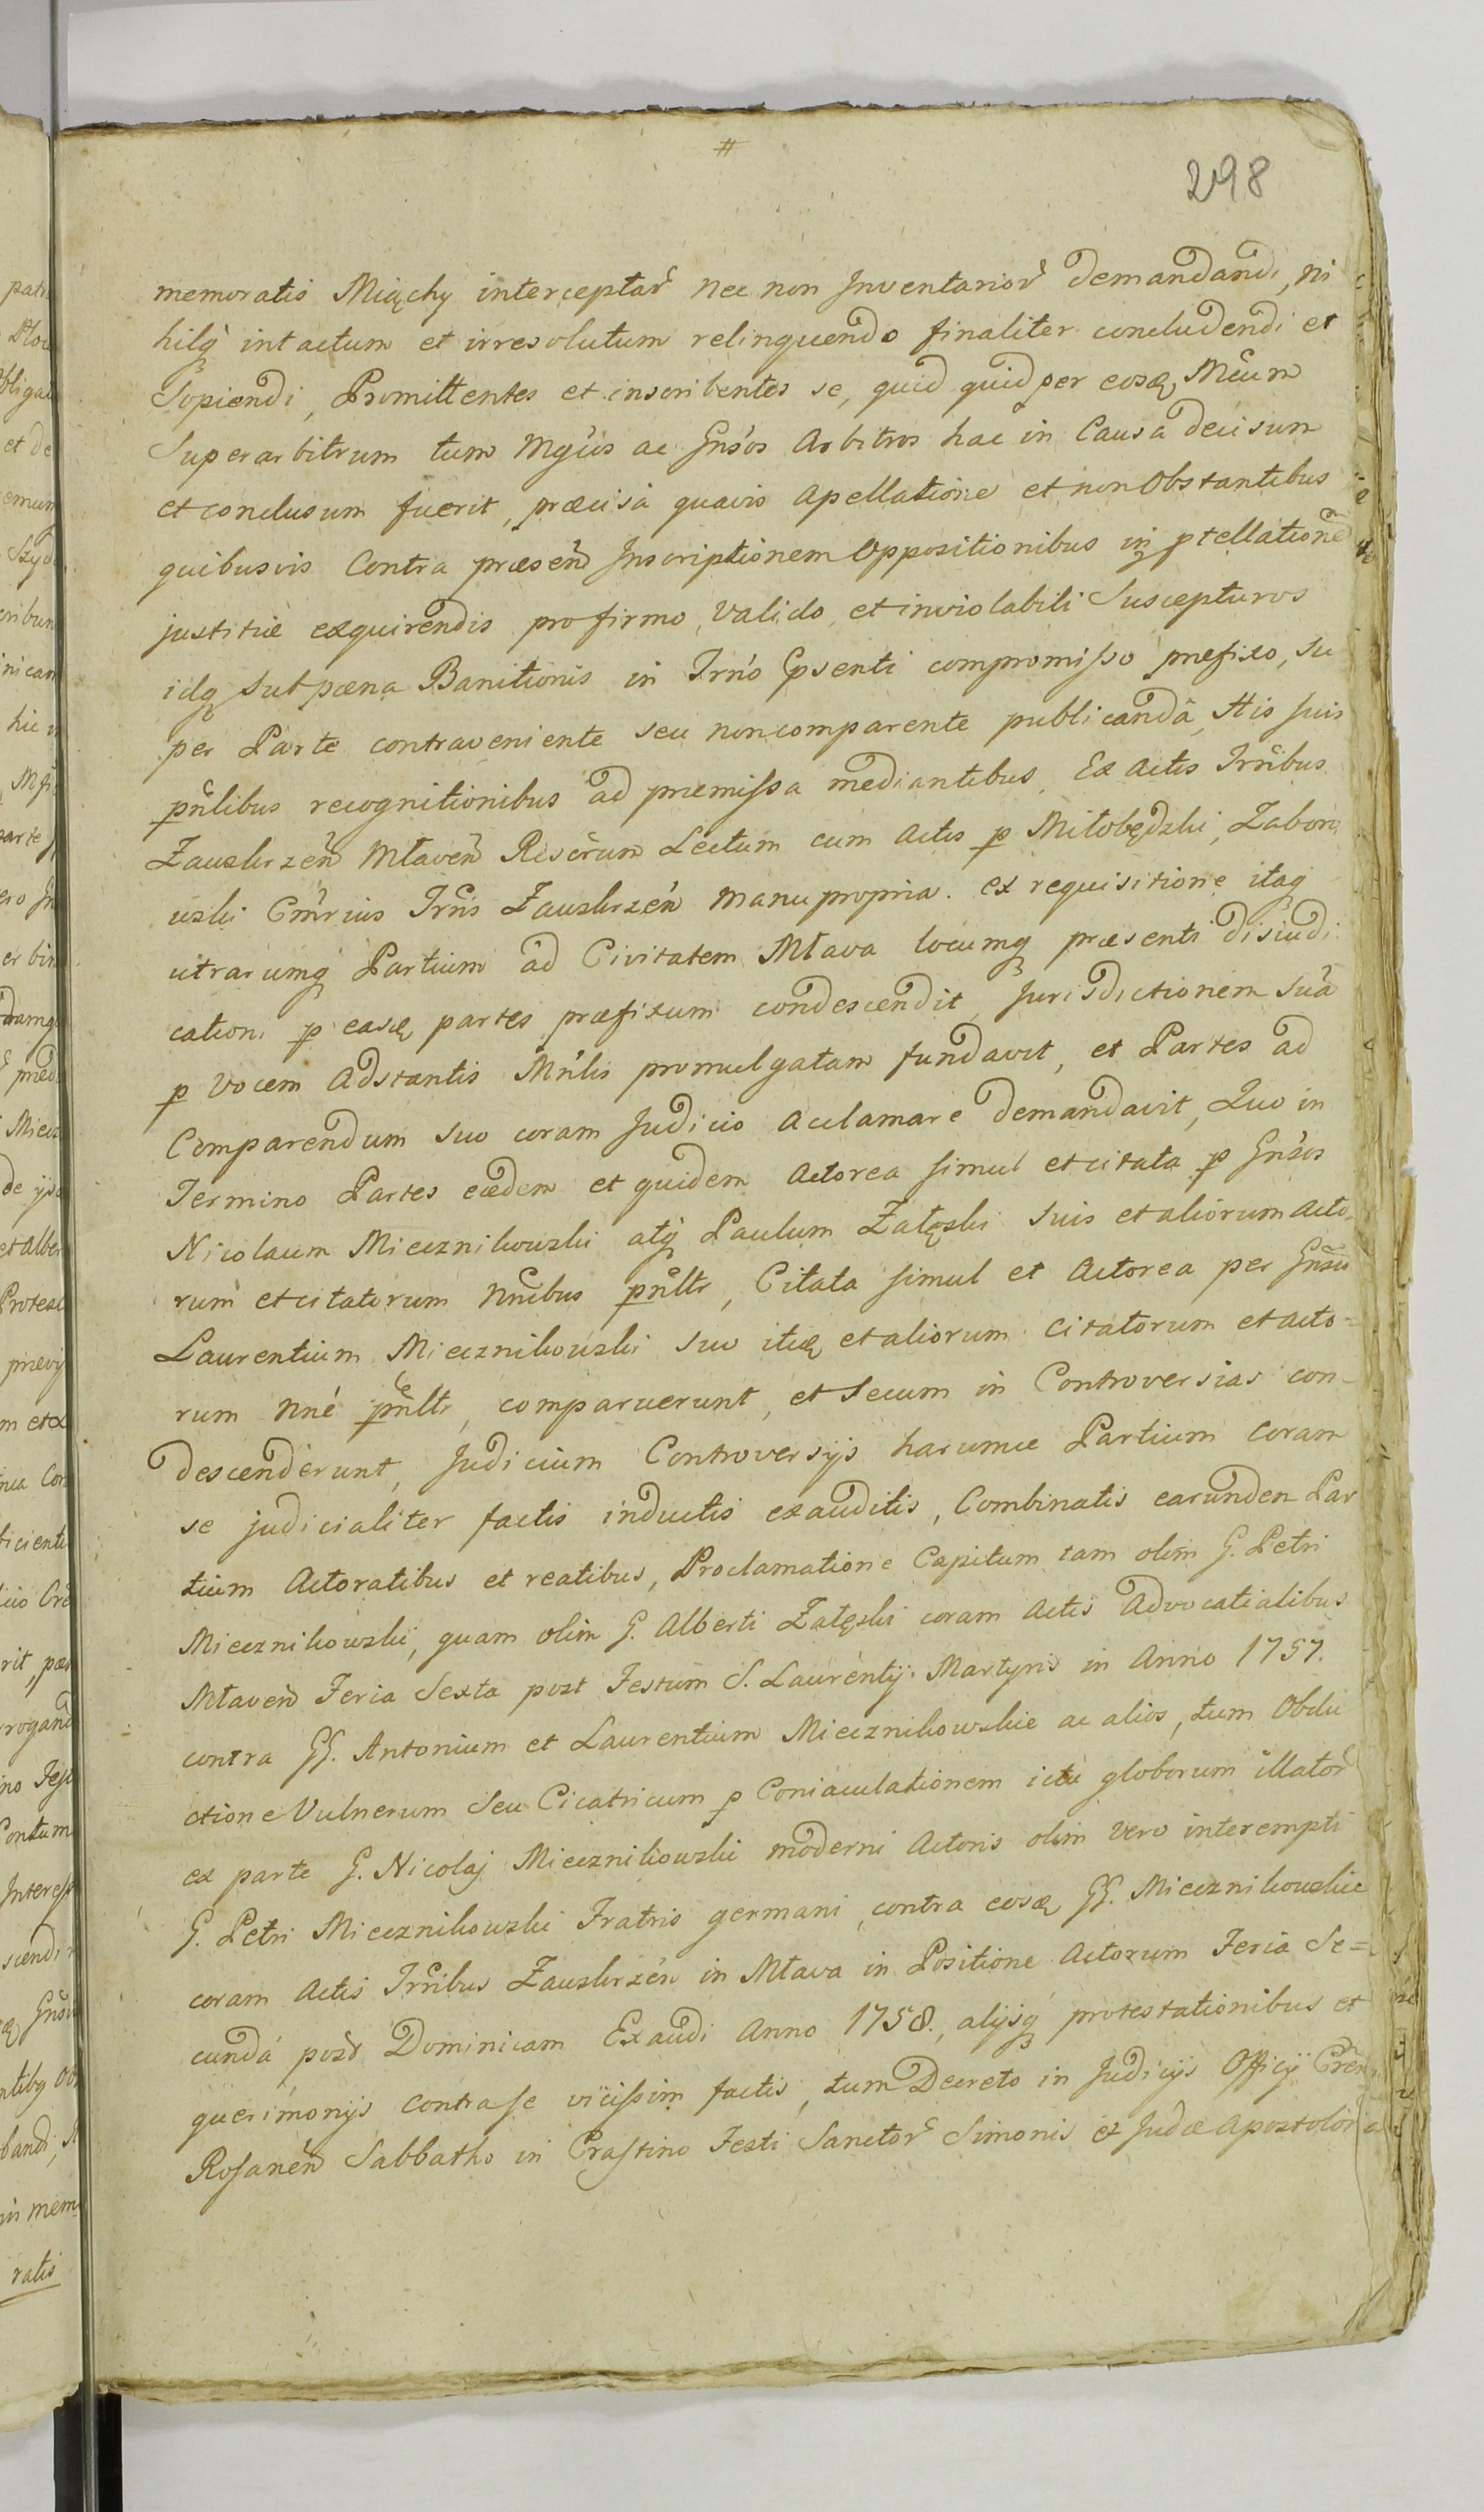 #
298
memoratis Miączhy interceptaȓ nec non Inventarioȓ demandandi, ni
hilq̀ intactum et irresolutum relinquendo finaliter concludendi et
Sopiendi, Promittentes et inscribentes se, quid quid per eosq, Mcum
Superarbitrum tum Mgcos ac Gnsos Arbitros hac in Causa decisum
et conclusum fuerit, præcisa quavis apellatione et non Obstantibus
quibusvis Contra præseñ Inscriptionem Oppositionibus inptellatione
justitiæ exquirendis pro firmo, valido, et inviolabili Suscepturos
idq sub pæna Banitionis in Trno psenti compromisso præfixo, su
per Parte contraveniente seu non comparente publicanda, His suis
pnlibus recognitionibus ad præmissa mediantibus. Ex Actis Trribus
Zauskrzeñ Młaveñ Rescrum Lectum cum actis p Miłobędzki, Zaboro
wski Cmrius Trris Zauskrzeñ manu propria. ex requisitione itaq
utrarumq Partium ad Civitatem Mława locumq præsenti disiudi
cationi p easq partes præfixum condescendit, Jurisdictionem suã
p vocem Adstantis Mnlis promulgatam fundavit, et Partes ad
Comparendum suo coram Judicio Acclamare demandavit, Quo in
Termino Partes eædem et quidem Actorea simul et citata p Gnsos
Nicolaum Miecznikowski atq̀ Paulum Załęski suis et aliorum acto-
rum et citatorum nnibus pnltr, Citata simul et Actorea per Gnsũ
Laurentium Miecznikowski suo itiq et aliorum citatorum et acto-
rum nné pnltr, comparuerunt, et Secum in Controversias con-
descenderunt, Judicium Controversijs harumce Partium coram
se judicialiter factis inductis exauditis, Combinatis earunden Par
tium Actoratibus et reatibus, Proclamatione Capitum tam olim G. Petri
Miecznikowski, quam olim G. Alberti Załęski coram Actis Advocatialibus
Młaveñ Feria Sexta post Festum S. Laurentij Martyris in Anno 1757.
contra GG. Antonium et Laurentium Miecznikowskie ac alios, tum Obdu
ctione Vulnerum seu Cicatricum p Coniaculationem ictu globorum illatoȓ
ex parte G. Nicolaj Miecznikowski moderni Actoris olim vero interempti
G. Petri Miecznikowski Fratris germani, contra eosq GG. Miecznikowskie
coram Actis Trribus Zauskrzeñ in Mława in Positione Actorum Feria Se=
cunda post Dominicam Exaudi Anno 1758., alijsq protestationibus et
querimonijs contra se vicissim factis, tum Decreto in Judicijs Officij
Rosaneñ Sabbatho in Crastino Festi Sanctoȓ Simonis et Judæ Apostolor